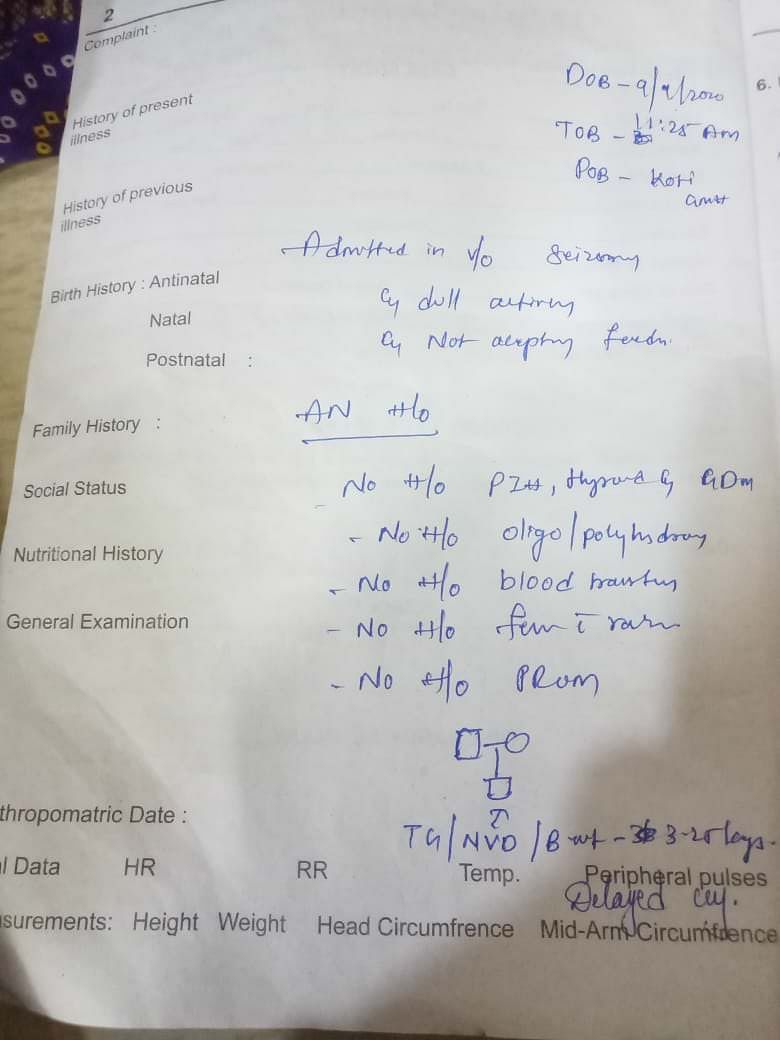 2
Complaint :
DOB - 9/9/2020
History of present
illness
TOB - 11:25 Am
POB - Koti
History of previous
illness
Admitted in v/o seizures
Birth History : Antinatal
Natal
dull activity
Postnatal :
Not accepting feeds
Family History :
AN H/o
Social Status
No H/o PIH, thyroid GDM
- No H/o oligo/polyhydro
Nutritional History
- No H/o blood
General Examination
- No H/o fever ī rash
- No H/o PROM
thropomatric Date :
TG/NVD/B wt - 3.25 kgs.
l Data HR RR Temp. Peripheral pulses
Delayed cry.
surements: Height Weight Head Circumfrence Mid-Arm Circumfdence
6.